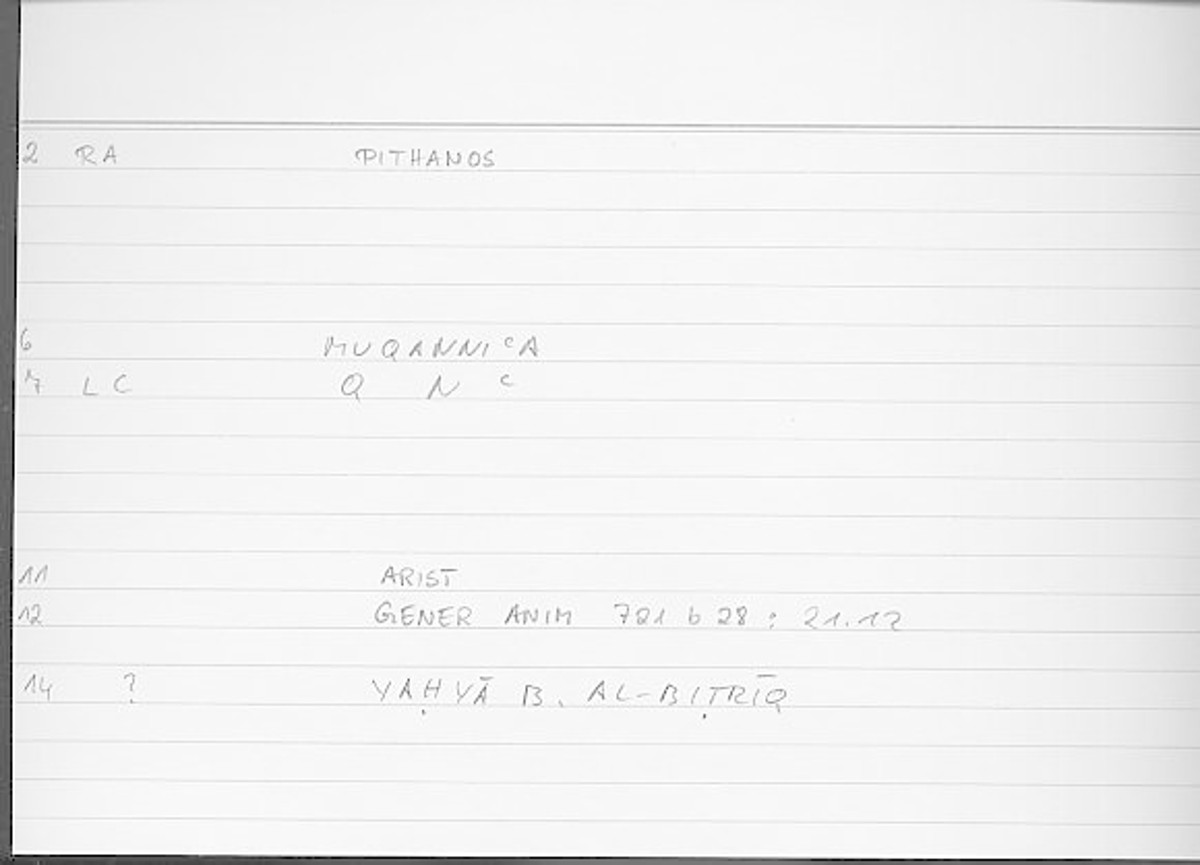 2 RA PITHANOS
6 MUQANNIᶜA
7 LC Q N ᶜ
11 ARIST
12 GENER ANIM 721 b 28 : 21.12
14 ? YAḤYĀ B. AL-BIṬRĪQ